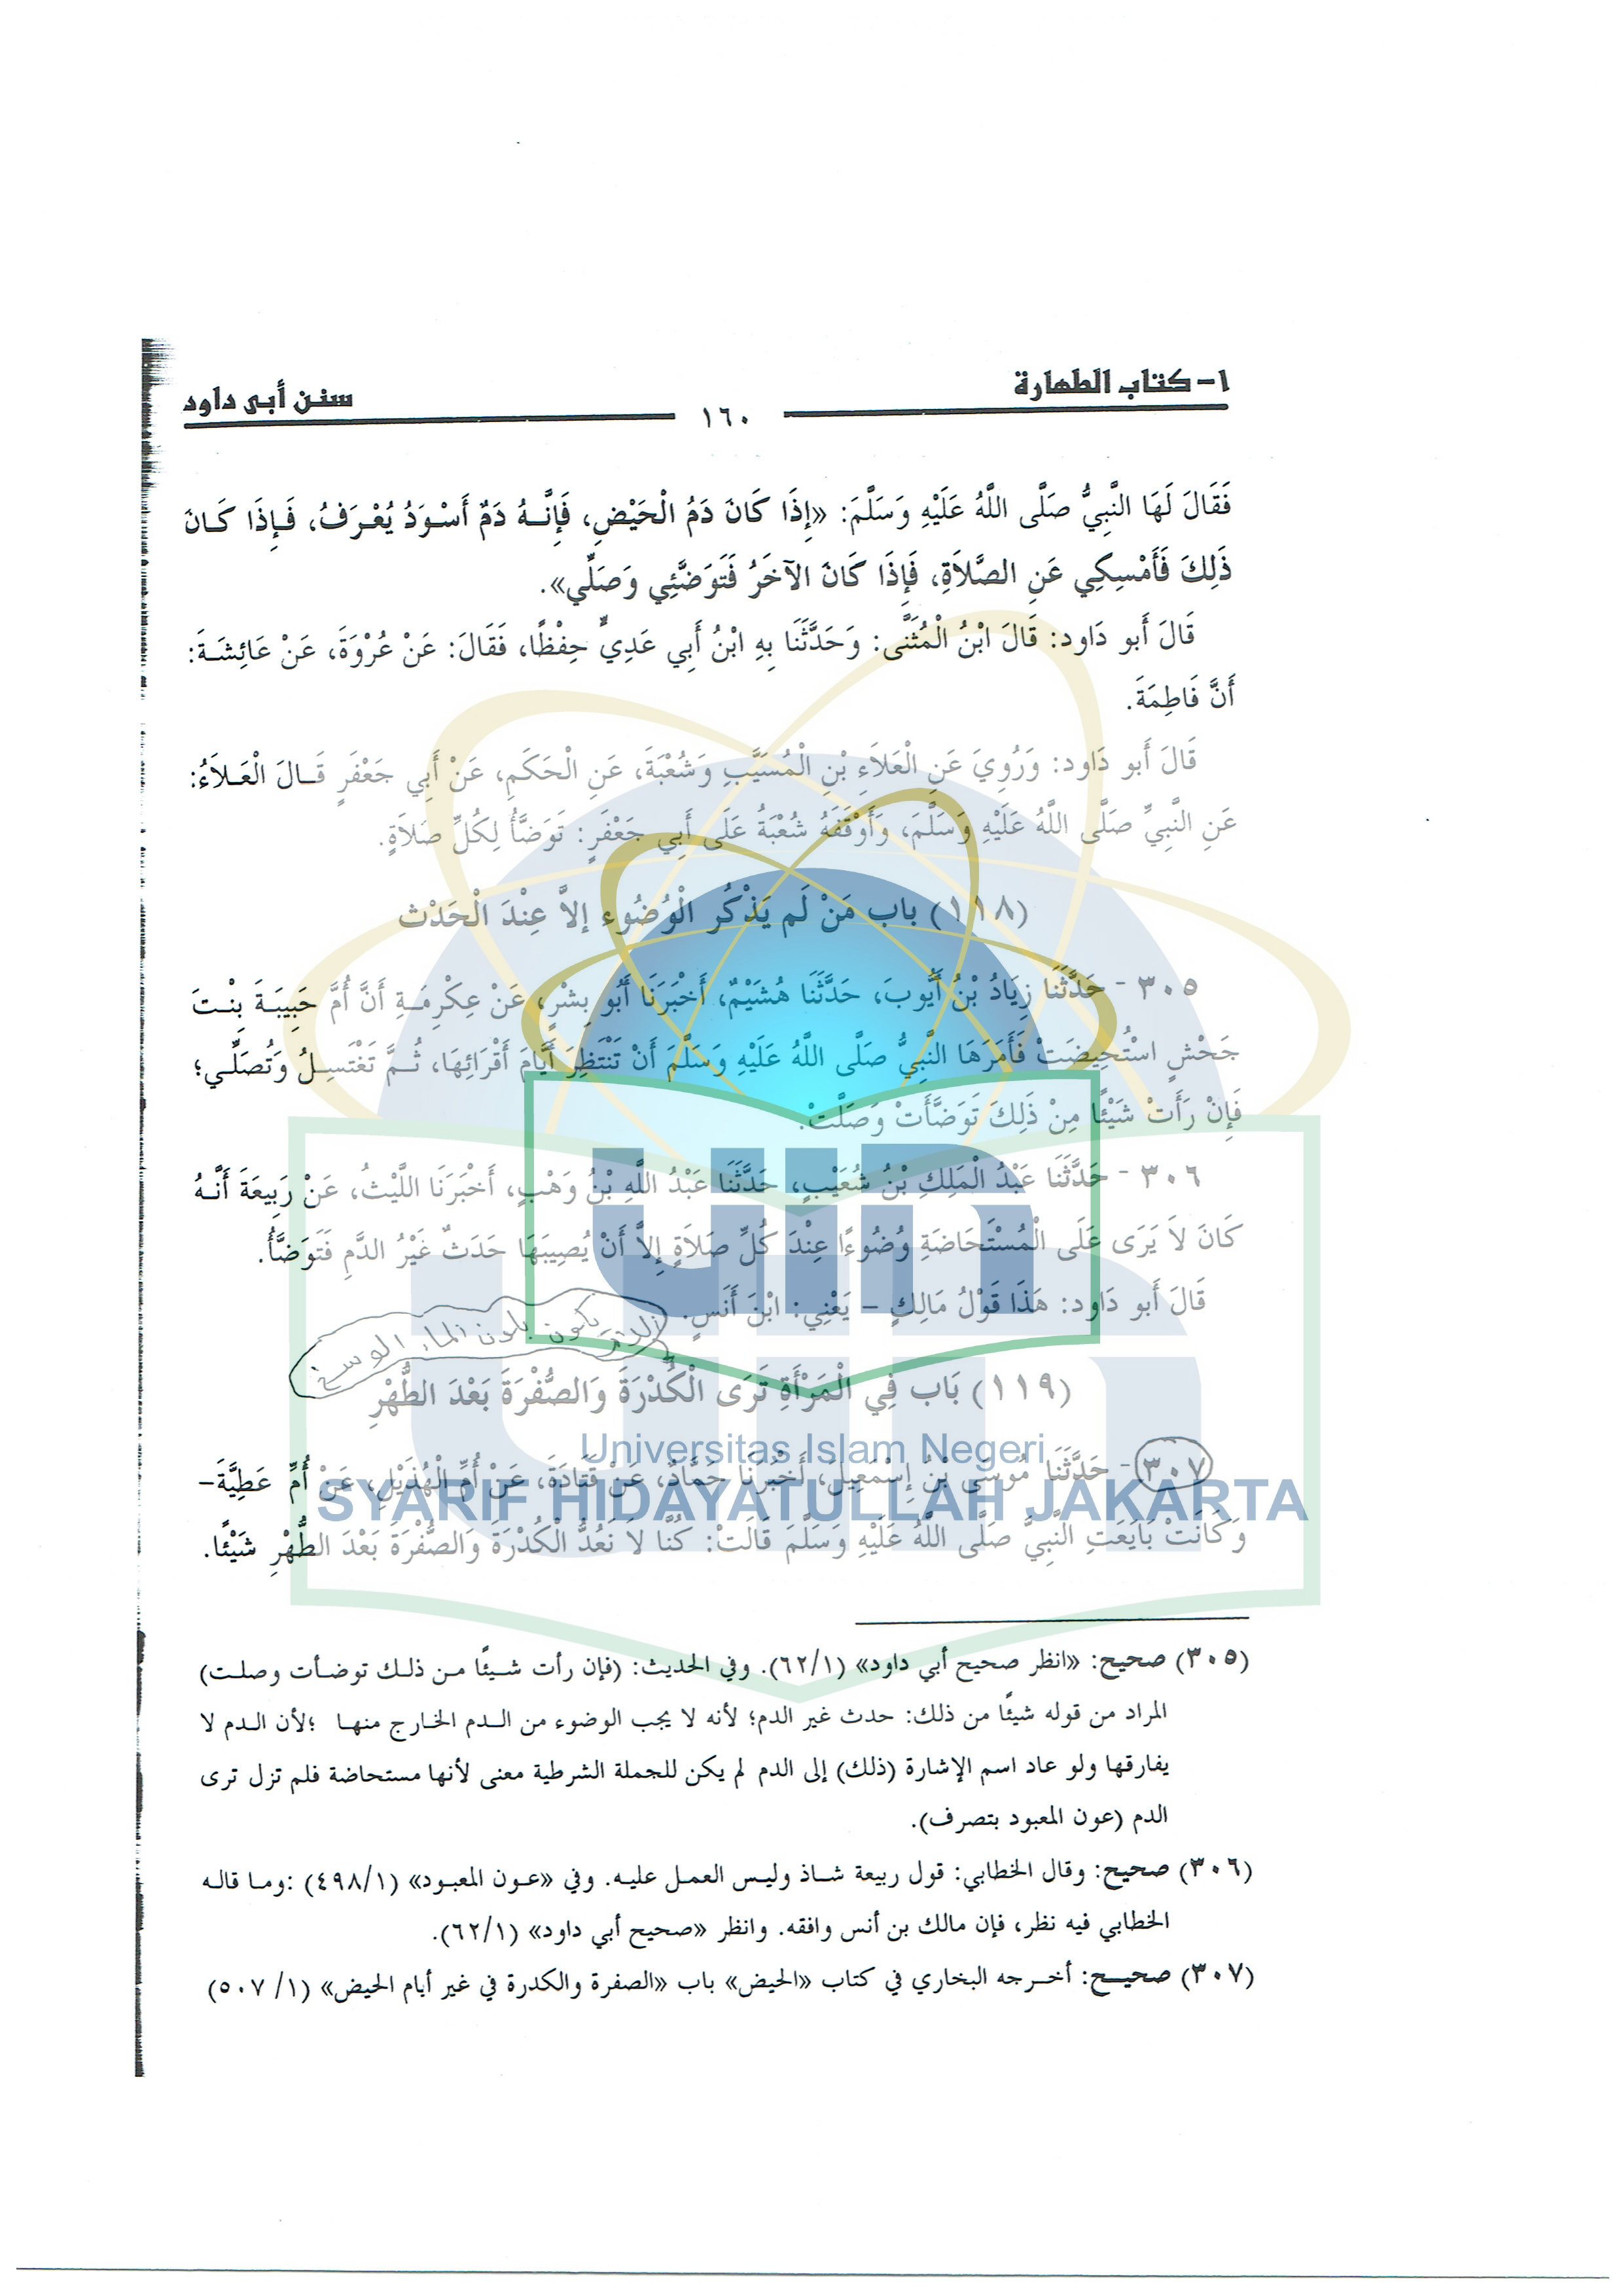 ١- كتاب الطهارة
١٦٠
سنن أبى داود
فَقَالَ لَهَا النَّبِيُّ صَلَّى اللَّهُ عَلَيْهِ وَسَلَّمَ: «إِذَا كَانَ دَمُ الْحَيْضِ، فَإِنَّـهُ دَمٌ أَسْـوَدُ يُعْـرَفُ، فَـإِذَا كَـانَ
ذَلِكَ فَأَمْسِكِي عَنِ الصَّلاَةِ، فَإِذَا كَانَ الآخَرُ فَتَوَضَّئِي وَصَلِّي».
قَالَ أَبو دَاود: قَالَ ابْنُ الْمُثَنَّى: وَحَدَّثَنَا بِهِ ابْنُ أَبِي عَدِيٍّ حِفْظًا، فَقَالَ: عَنْ عُرْوَةَ، عَنْ عَائِشَـةَ:
أَنَّ فَاطِمَةَ.
قَالَ أَبو دَاود: وَرُوِيَ عَنِ الْعَلاَءِ بْنِ الْمُسَيَّبِ وَشُعْبَةَ، عَنِ الْحَكَمِ، عَنْ أَبِي جَعْفَرٍ قَـالَ الْعَـلاَءُ:
عَنِ النَّبِيِّ صَلَّى اللَّهُ عَلَيْهِ وَسَلَّمَ، وَأَوْقَفَهُ شُعْبَةُ عَلَى أَبِي جَعْفَرٍ: تَوَضَّأُ لِكُلِّ صَلاَةٍ.
(١١٨) باب مَنْ لَم يَذْكُر الْوُضُوء إلاَّ عِنْدَ الْحَدْث
٣٠٥ - حَدَّثَنَا زِيَادُ بْنُ أَيُّوبَ، حَدَّثَنَا هُشَيْمٌ، أَخْبَرَنَا أَبُو بِشْرٍ، عَنْ عِكْرِمَـةِ أَنَّ أُمَّ حَبِيبَـةَ بِنْـتَ
جَحْشٍ اسْتُحِيضَتْ فَأَمَرَهَا النَّبِيُّ صَلَّى اللَّهُ عَلَيْهِ وَسَلَّمَ أَنْ تَنْتَظِرَ أَيَّامَ أَقْرَائِهَا، ثُـمَّ تَغْتَسِـلُ وَتُصَلِّـي؛
فَإِنْ رَأَتْ شَيْئًا مِنْ ذَلِكَ تَوَضَّأَتْ وَصَلَّتْ.
٣٠٦ - حَدَّثَنَا عَبْدُ الْمَلِكِ بْنُ شُعَيْبٍ، حَدَّثَنَا عَبْدُ اللَّهِ بْنُ وَهْبٍ، أَخْبَرَنَا اللَّيْثُ، عَنْ رَبِيعَةَ أَنَّـهُ
كَانَ لاَ يَرَى عَلَى الْمُسْتَحَاضَةِ وُضُوءًا عِنْدَ كُلِّ صَلاَةٍ إِلاَّ أَنْ يُصِيبَهَا حَدَثٌ غَيْرُ الدَّمِ فَتَوَضَّأُ.
قَالَ أَبو دَاود: هَذَا قَوْلُ مَالِكٍ – يَعْنِي: ابْنَ أَنَسٍ.
يكون بلون الماء الوسخ
(١١٩) بَاب فِي الْمَرْأَةِ تَرَى الْكُدْرَةَ وَالصُّفْرَةَ بَعْدَ الطُّهْرِ
٣٠٧ - حَدَّثَنَا مُوسَى بْنُ إِسْمَعِيلَ، أَخْبَرَنَا حَمَّادٌ، عَنْ قَتَادَةَ، عَنْ أُمِّ الْهُذَيْلِ، عَنْ أُمِّ عَطِيَّةَ–
وَكَانَتْ بَايَعَتِ النَّبِيَّ صَلَّى اللَّهُ عَلَيْهِ وَسَلَّمَ قَالَتْ: كُنَّا لاَ نَعُدُّ الْكُدْرَةَ وَالصُّفْرَةَ بَعْدَ الطُّهْرِ شَيْئًا.
Universitas Islam Negeri
SYARIF HIDAYATULLAH JAKARTA
uin
uin
(٣٠٥) صحيح: «انظر صحيح أبي داود» (٦٢/١). وفي الحديث: (فإن رأت شـيئًا مـن ذلـك توضـأت وصلـت)
المراد من قوله شيئًا من ذلك: حدث غير الدم؛ لأنه لا يجب الوضوء من الـدم الخـارج منهـا ؛لأن الـدم لا
يفارقها ولو عاد اسم الإشارة (ذلك) إلى الدم لم يكن للجملة الشرطية معنى لأنها مستحاضة فلم تزل ترى
الدم (عون المعبود بتصرف).
(٣٠٦) صحيح: وقال الخطابي: قول ربيعة شـاذ وليـس العمـل عليـه. وفي «عـون المعبـود» (٤٩٨/١) :ومـا قالـه
الخطابي فيه نظر، فإن مالك بن أنس وافقه. وانظر «صحيح أبي داود» (٦٢/١).
(٣٠٧) صحيـح: أخـرجه البخاري في كتاب «الحيض» باب «الصفرة والكدرة في غير أيام الحيض» (١/ ٥٠٧)